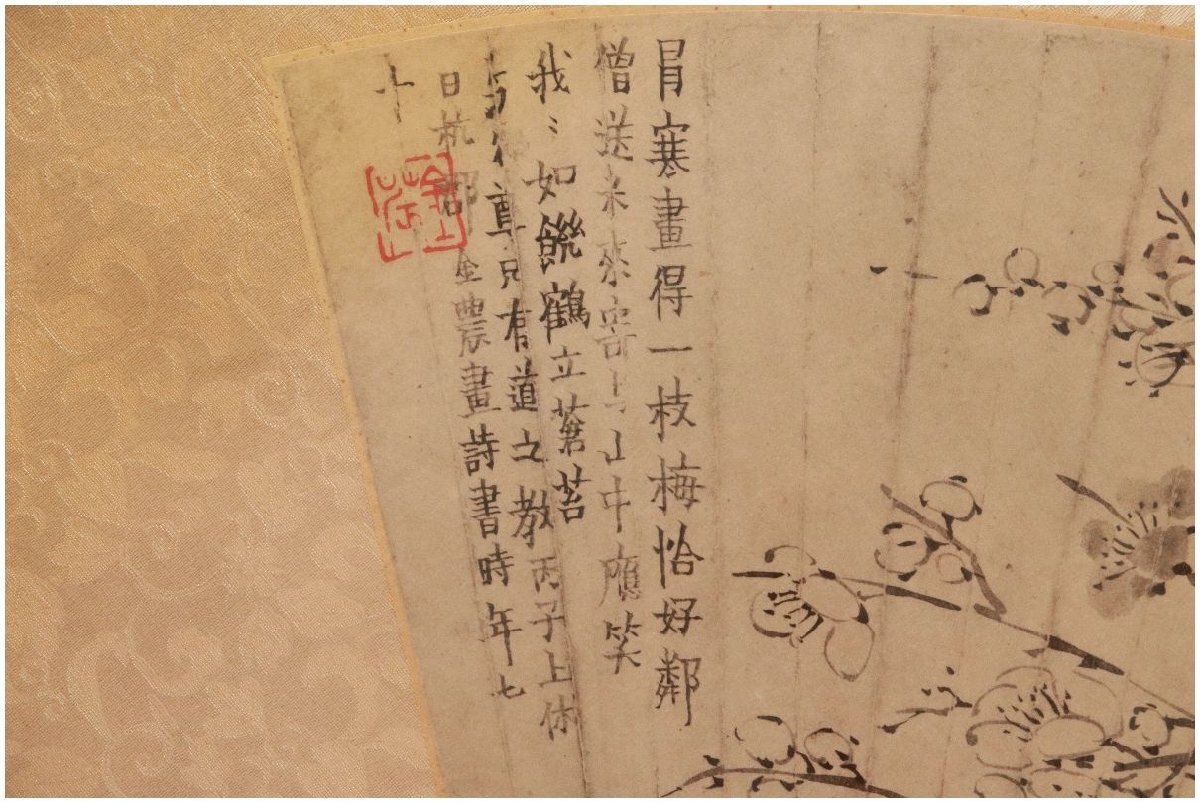 冐寒畫得一枝梅恰好鄰
僧送米來寄山中應笑
我〻如饑鶴立蒼苔
尊兄有道之教丙子上休
日杭郡金農畫詩書時年七
十